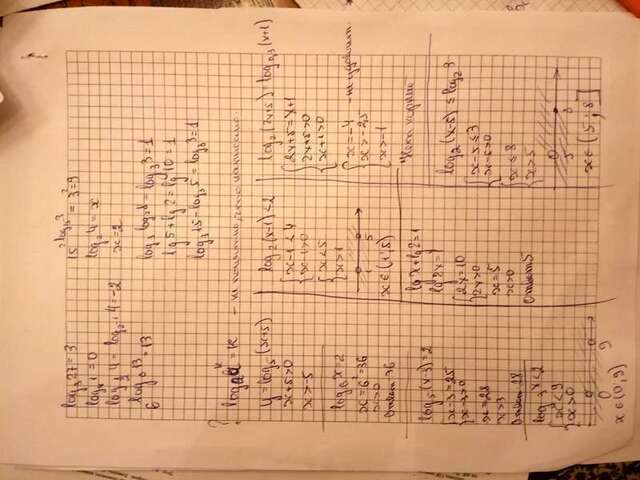 log₃27=3
log₄1=0
log_{1/2}4=log_{2⁻¹}4=-2
6^{log₆13}=13
15^{2log₁₅3}=3²=9
log₂4=x
x=2
log₃log₂8=log₃3=1
lg5+lg2=lg10=1
log₃15-log₃5=log₃3=1
? log_a a^k=k - не понятно, что написано
y=log₅(x+5)
x+5>0
x>-5
log₆x=2
x=6²=36
x>0
Ответ 36
log₅(x-3)=2
x-3=25
x-3>0
x=28
x>3
Ответ 28
log₃x<2
x<9
x>0
0 9
x∈(0,9)
log₂(x-1)<2
x-1<4
x-1>0
x<5
x>1
1 5
x∈(1;5)
lgx+lg2=1
lg2x=1
2x=10
2x>0
x=5
x>0
Ответ 5
(2x+5)=
(x+1)
2x+5=x+1
2x+5>0
x+1>0
x=-4 - не удовлет.
x>-2,5
x>-1
Нет корней
log₂(x-5)≤log₂3
x-5≤3
x-5>0
x≤8
x>5
5 8
x∈(5;8]